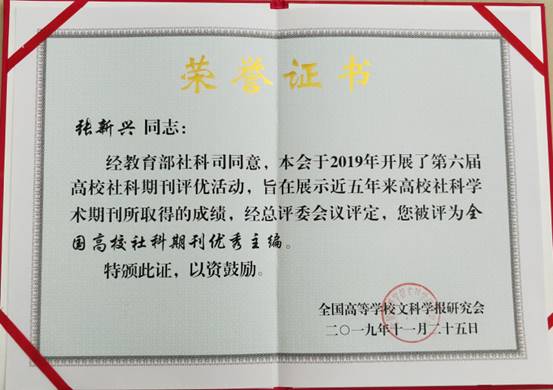 荣誉证书
张新兴 同志：
经教育部社科司同意，本会于2019年开展了第六届
高校社科期刊评优活动，旨在展示近五年来高校社科学
术期刊所取得的成绩，经总评委会议评定，您被评为全
国高校社科期刊优秀主编。
特颁此证，以资鼓励。
全国高等学校文科学报研究会
二〇一九年十一月二十五日